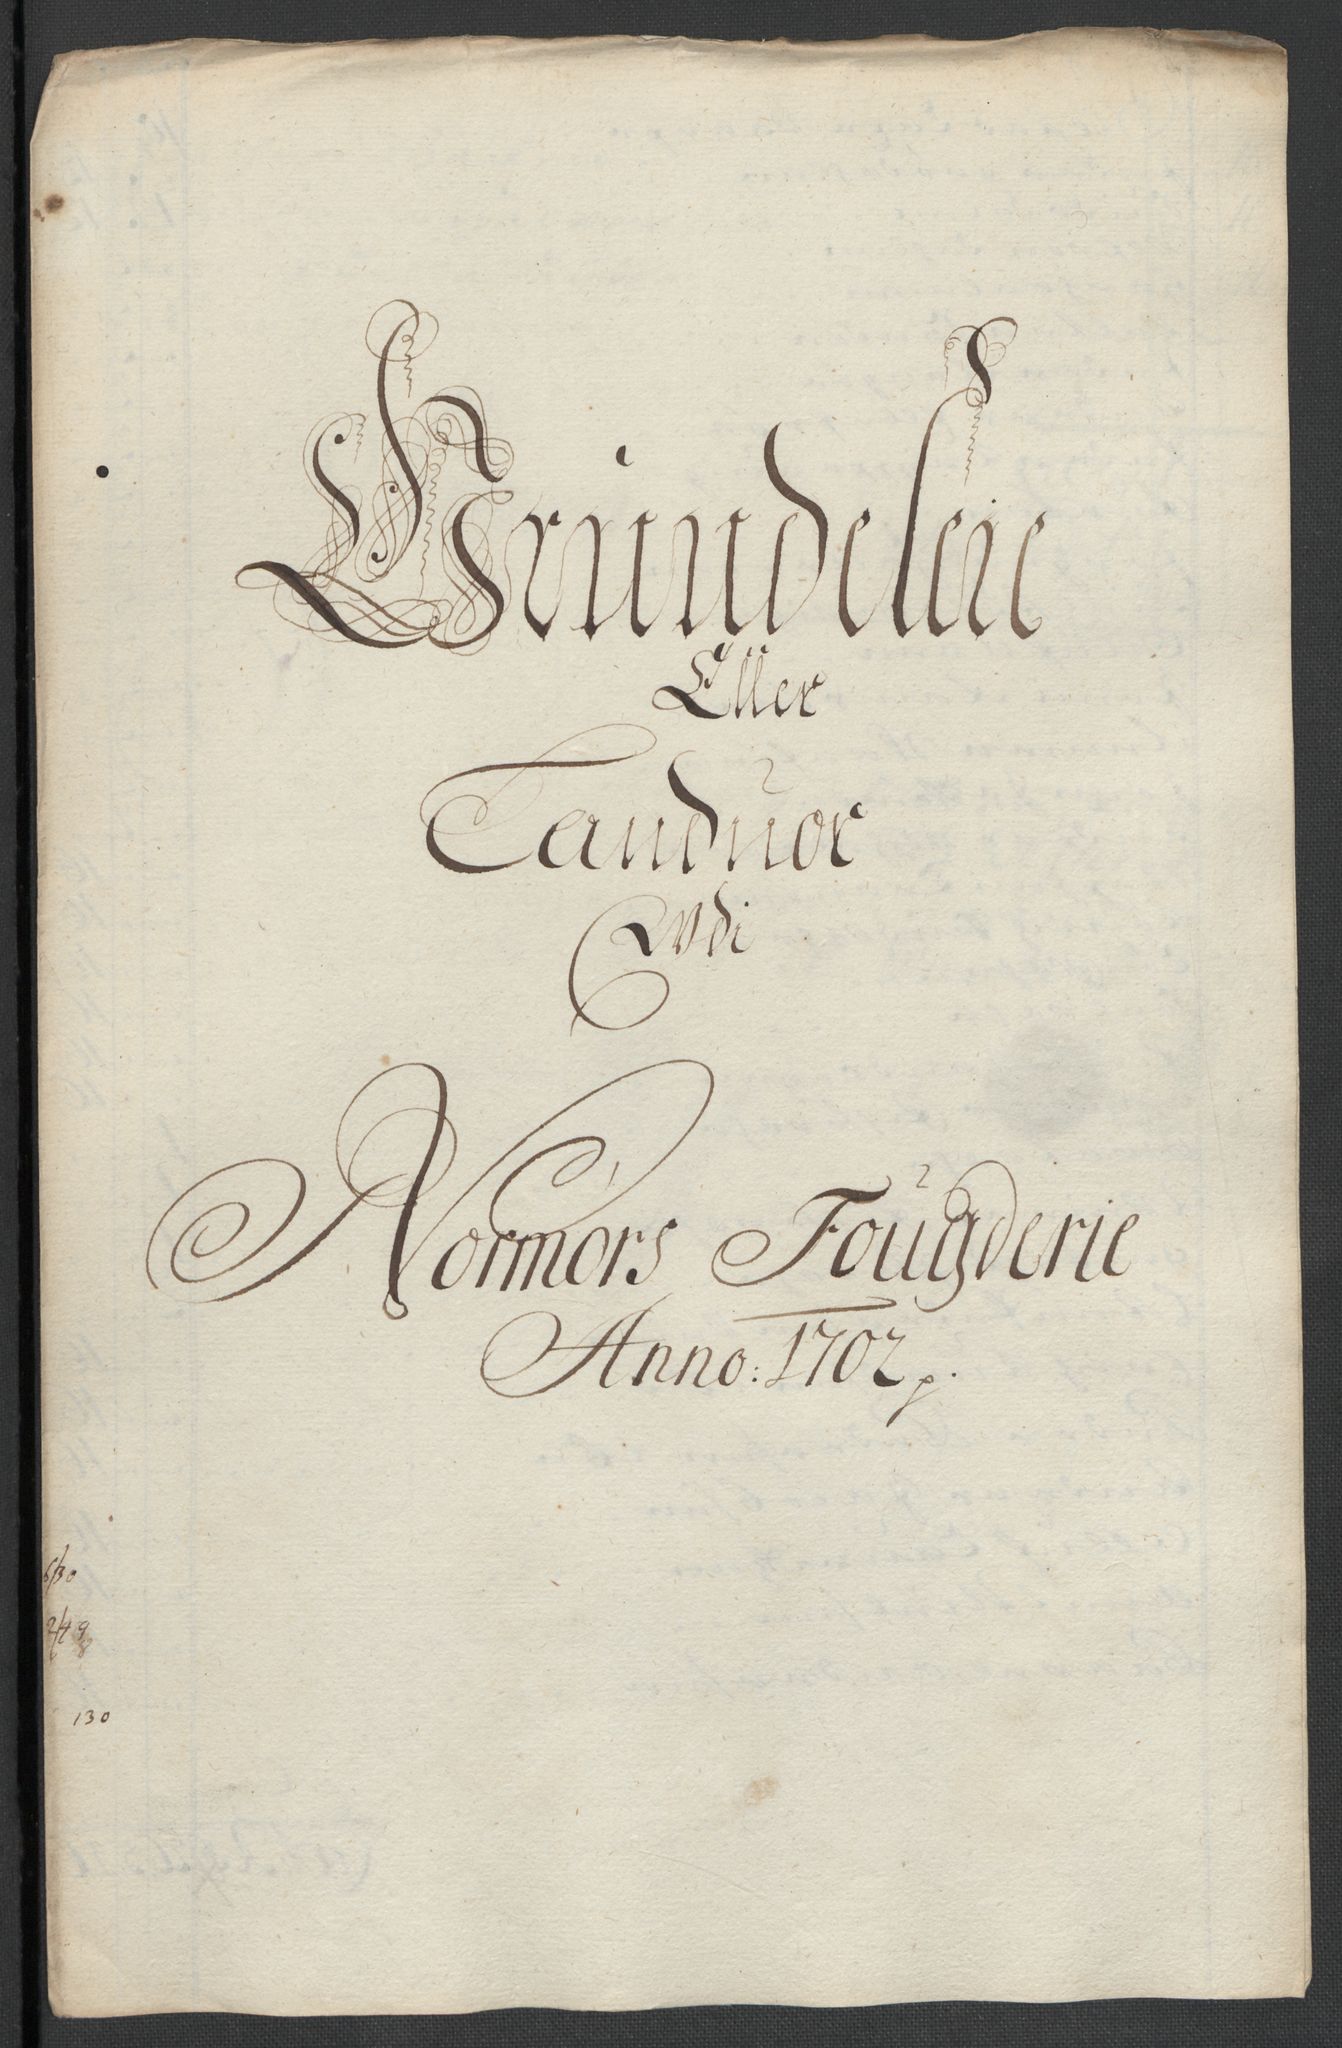 Grundeleie
Eller
Tanduor
Udi
Normørs Fougderie
Anno: 1702
130